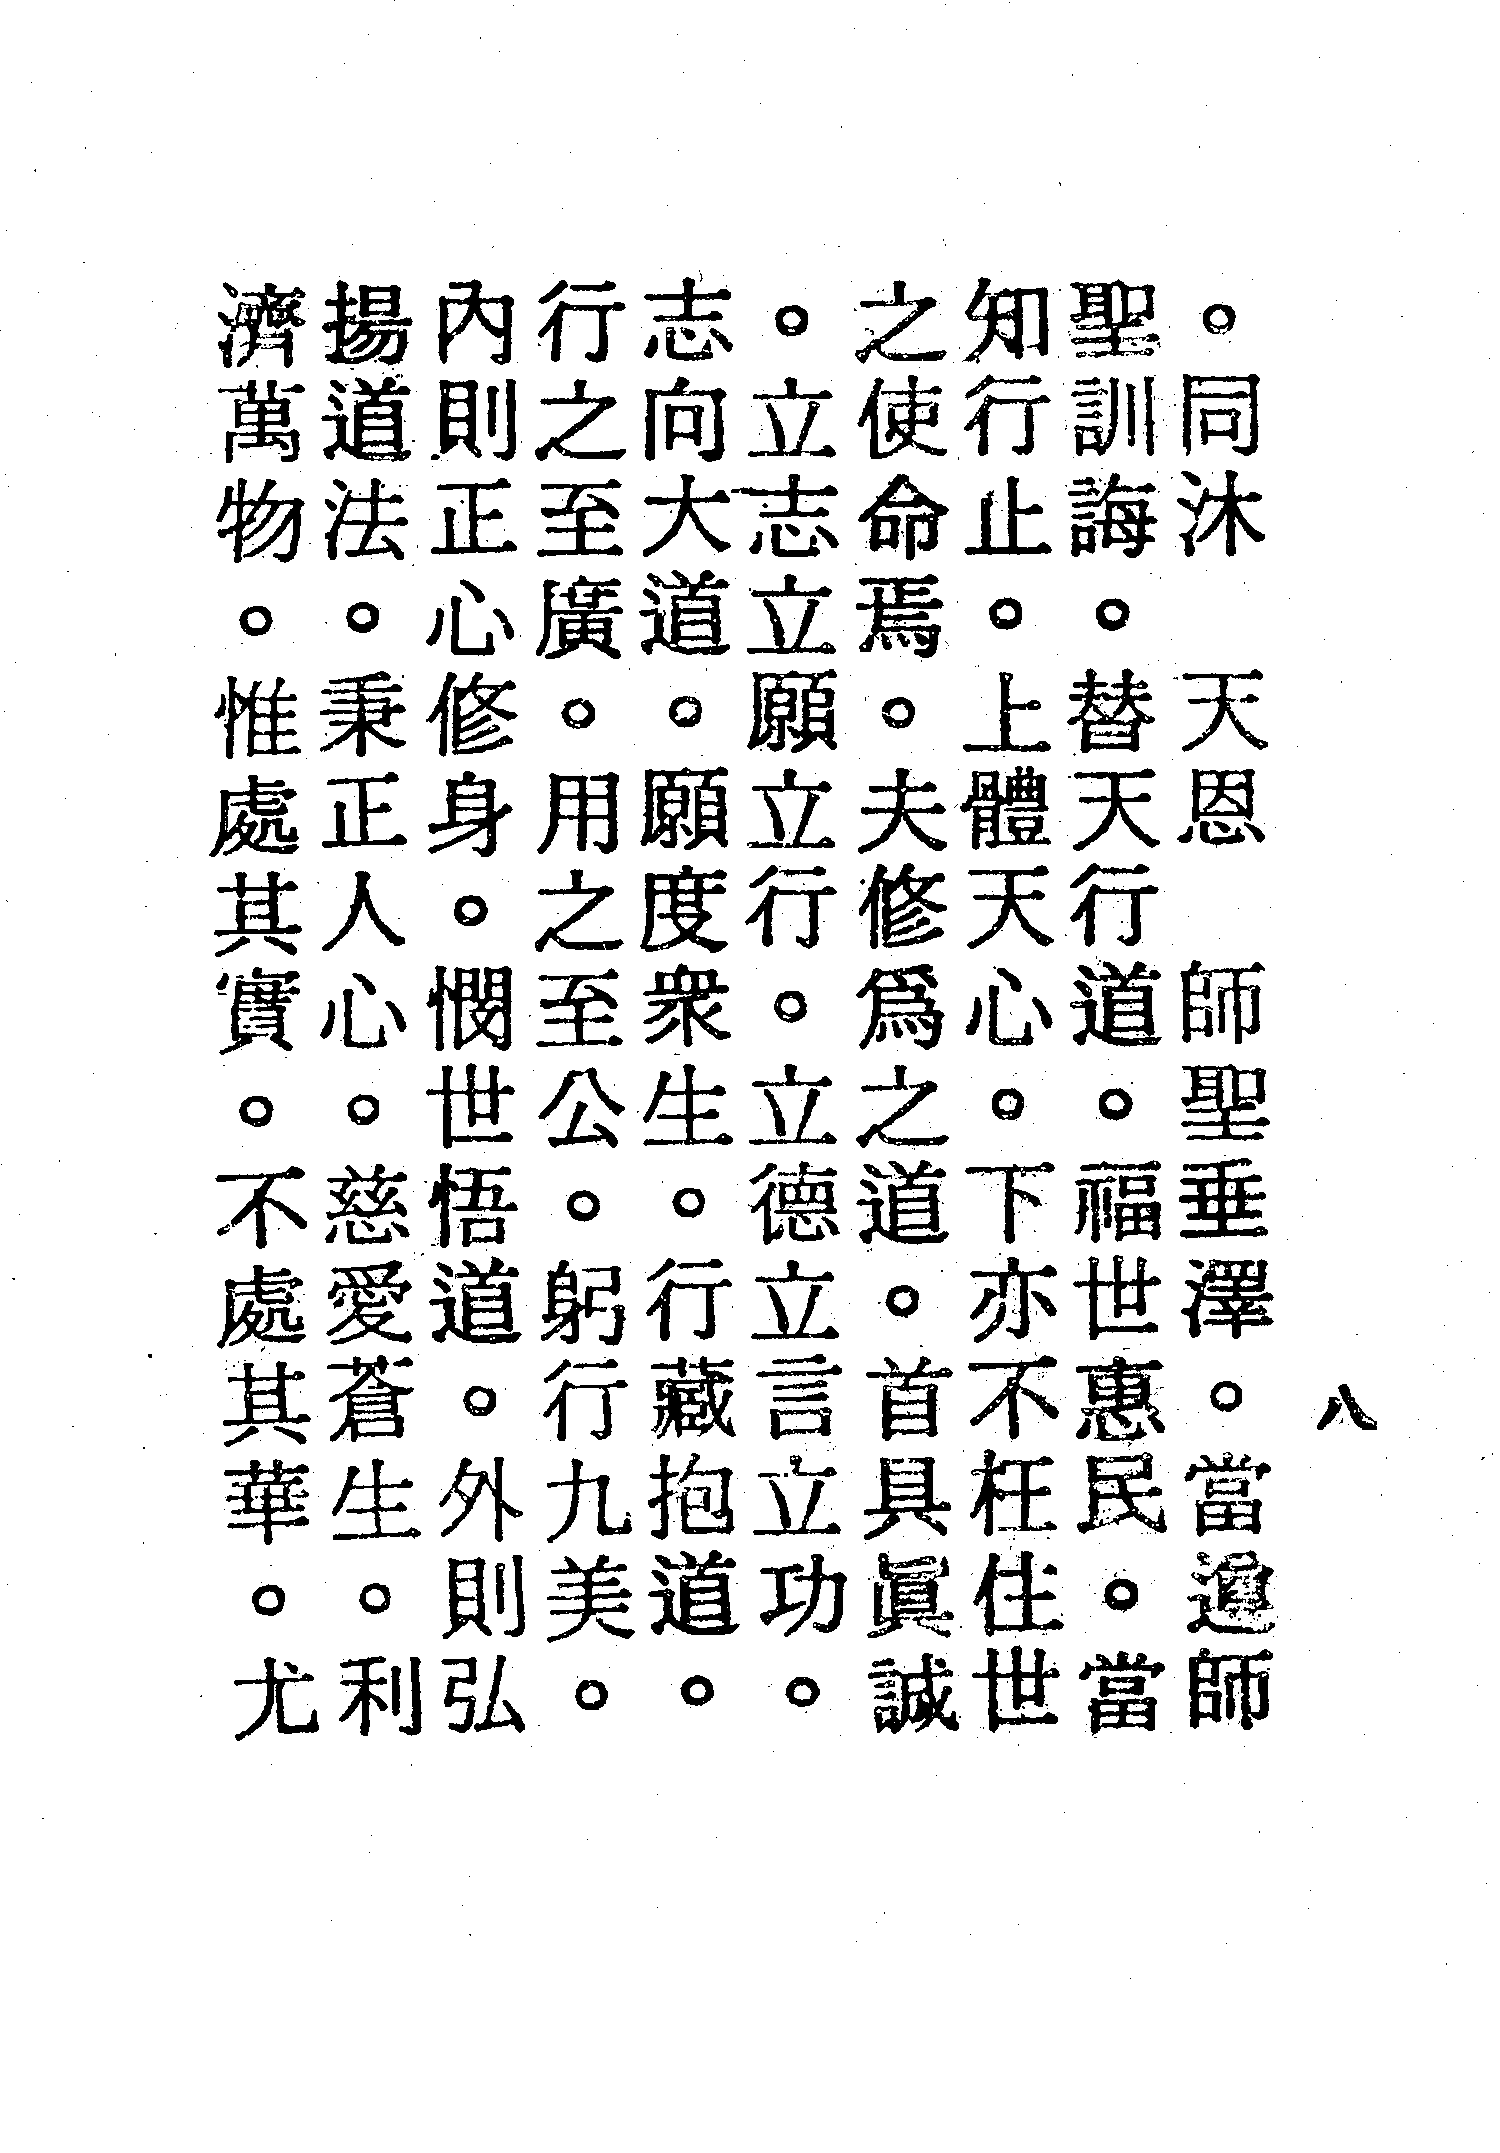 八
。同沐　天恩　師聖垂澤。當遵師
聖訓誨。替天行道。福世惠民。當
知行止。上體天心。下亦不枉住世
之使命焉。夫修爲之道。首具眞誠
。立志立願立行。立德立言立功。
志向大道。願度衆生。行藏抱道。
行之至廣。用之至公。躬行九美。
內則正心修身。憫世悟道。外則弘
揚道法。秉正人心。慈愛蒼生。利
濟萬物。惟處其實。不處其華。尤